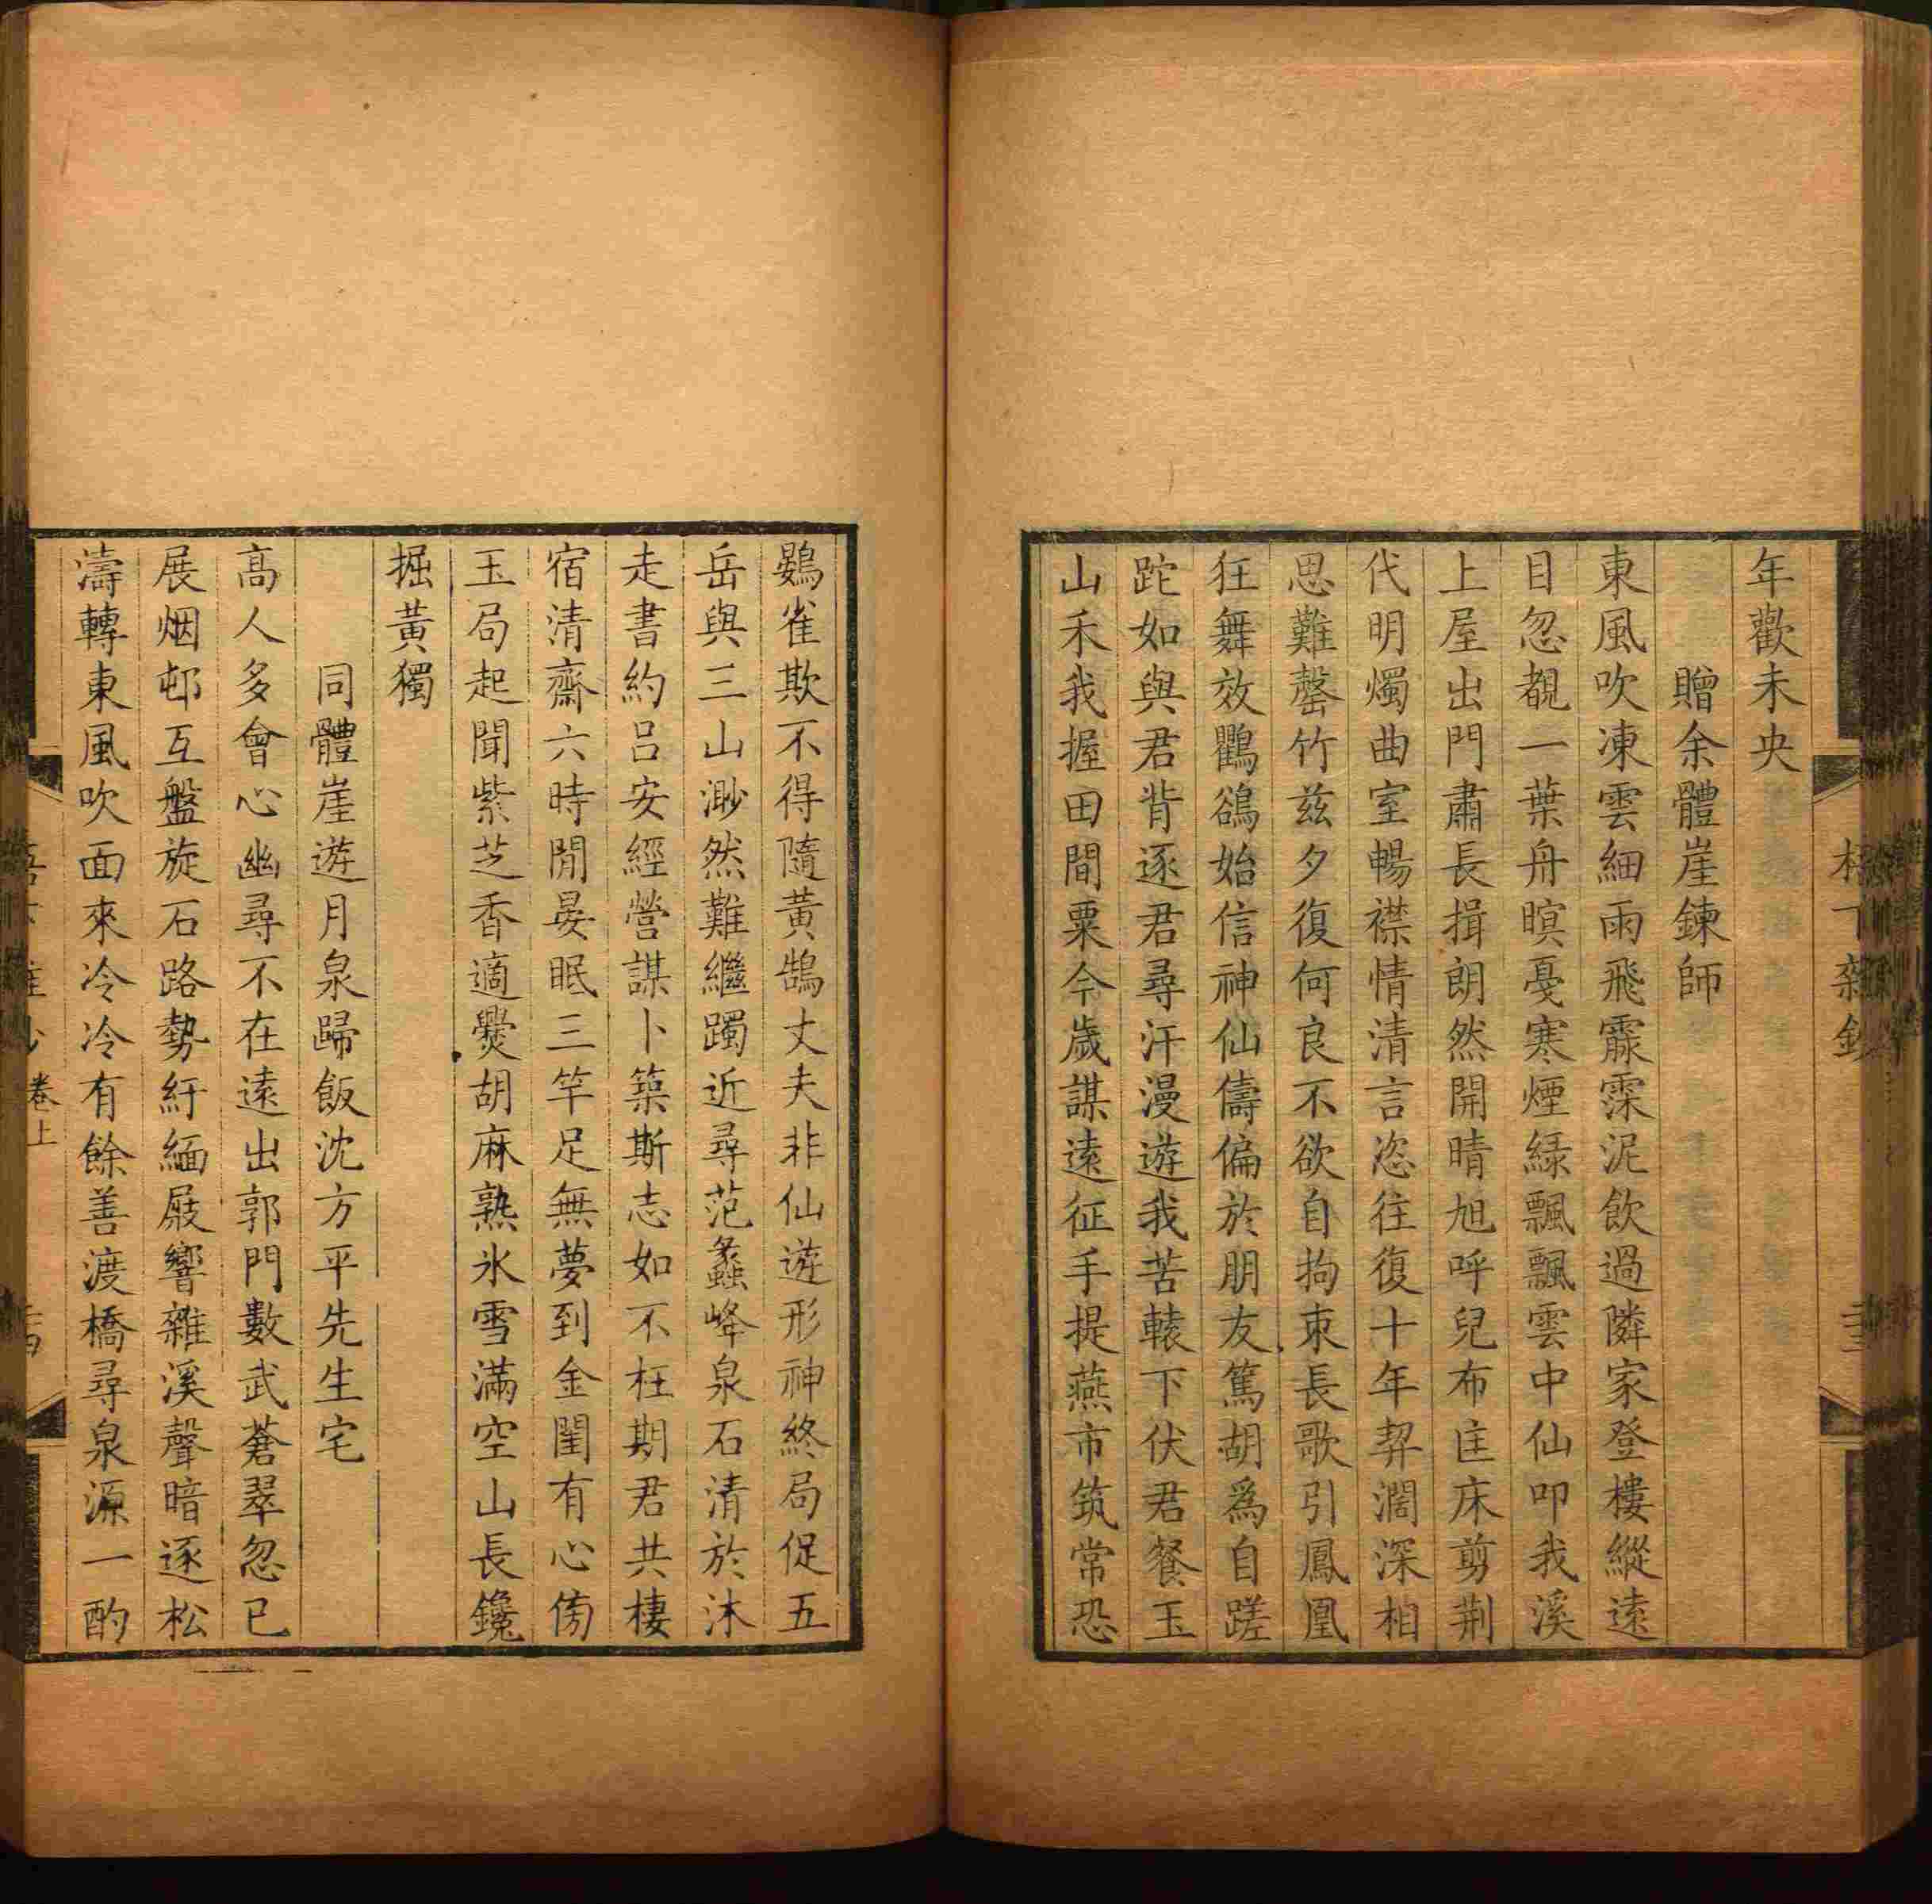 年歡未央
贈余體崖鍊師
東風吹凍雲細雨飛霡霂泥飲過隣家登樓縱遠
目忽覩一葉舟暝戞寒煙綠飄飄雲中仙叩我溪
上屋出門肅長揖朗然開晴旭呼兒布匡床剪荆
代明燭曲室暢襟情清言恣往復十年契濶深相
思難罄竹兹夕復何良不欲自拘束長歌引鳳凰
狂舞效鸜鵒始信神仙儔偏於朋友篤胡爲自蹉
跎如與君背逐君尋汗漫遊我苦轅下伏君餐玉
山禾我握田間粟今歲謀遠征手提燕市筑常恐
鷃雀欺不得隨黃鵠丈夫非仙遊形神終局促五
岳與三山渺然難繼躅近尋范蠡峰泉石清於沐
走書約呂安經營謀卜築斯志如不枉期君共棲
宿清齋六時閒晏眠三竿足無夢到金閨有心傍
玉局起聞紫芝香適爨胡麻熟氷雪滿空山長鑱
掘黃獨
同體崖遊月泉歸飯沈方平先生宅
高人多會心幽尋不在遠出郭門數武蒼翠忽已
展烟邨互盤旋石路勢紆緬屐響雜溪聲暗逐松
濤轉東風吹面來冷冷有餘善渡橋尋泉源一酌
卷上